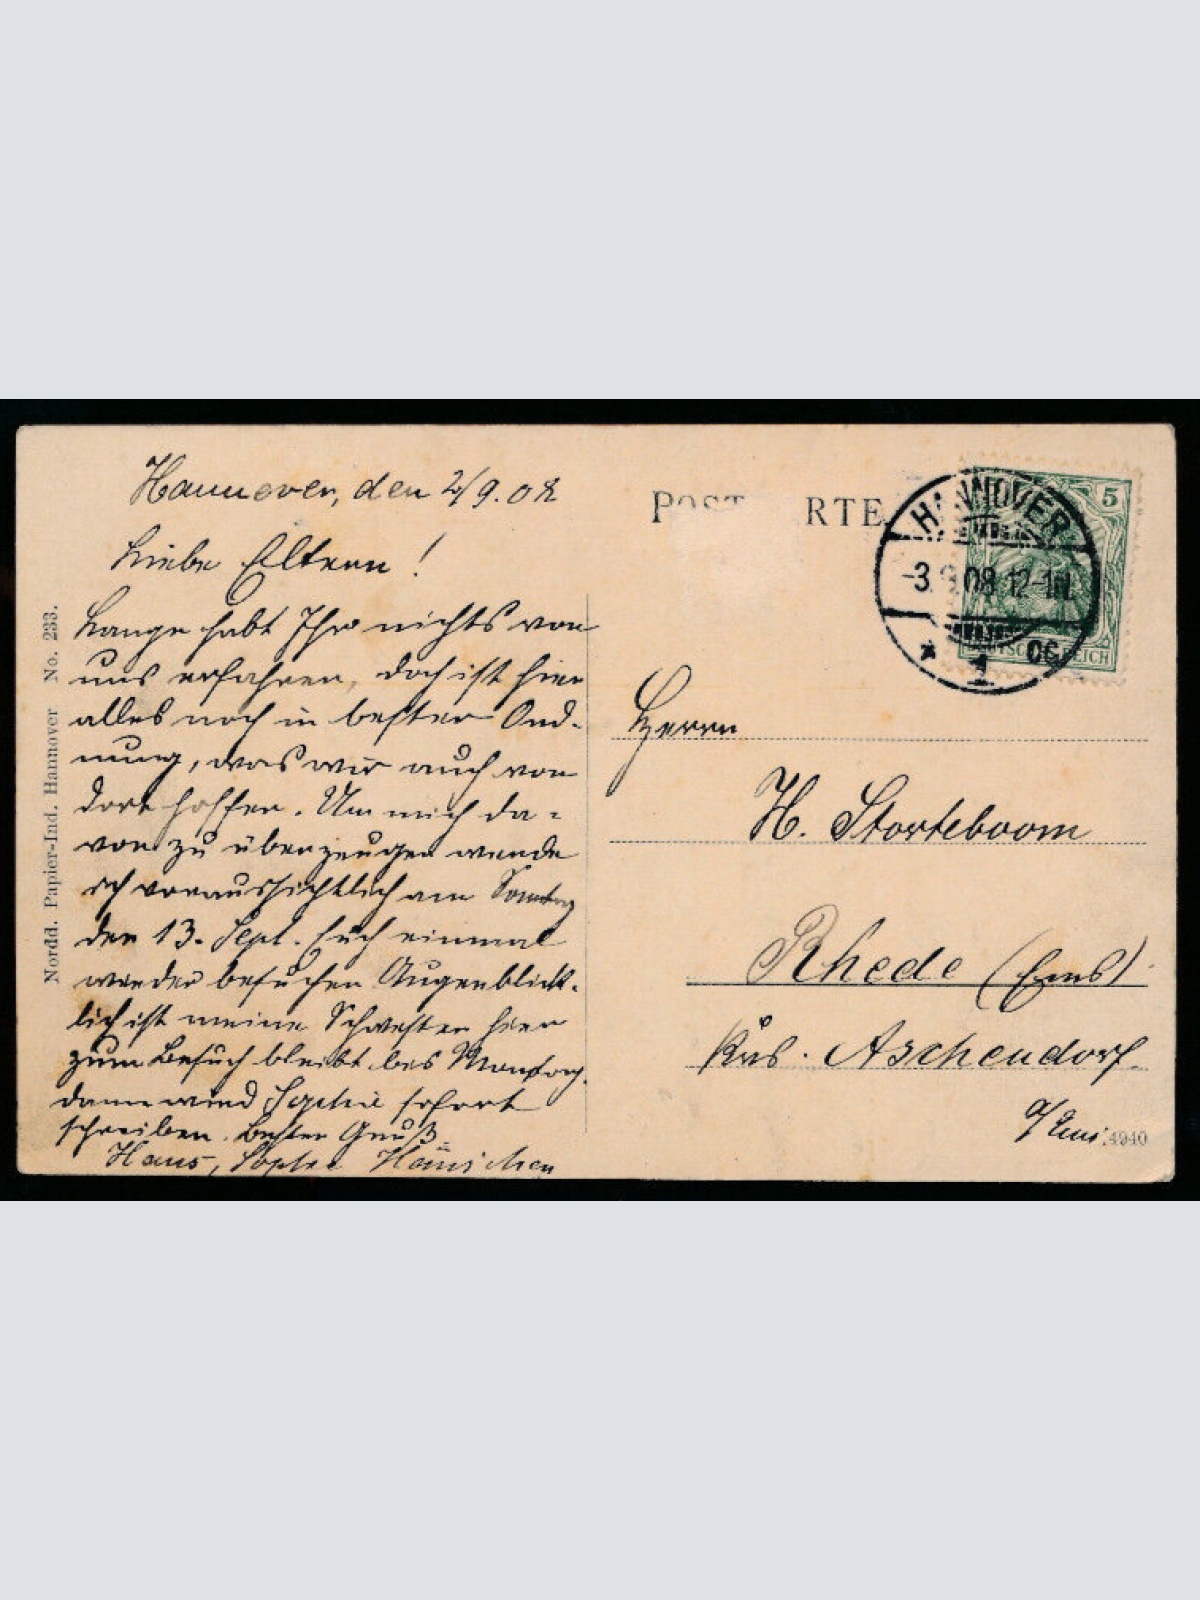 Hannover, den 2/9.08
Liebe Eltern!
Lange habt Ihr nichts von
uns erfahren, doch ist hier
alles noch in bester Ord-
nung, was wir auch von
dort hoffen. Um mich da-
von zu überzeugen werde
ich voraussichtlich am Sonntag
den 13. Sept. Euch einmal
wieder besuchen Augenblick-
lich ist meine Schwester hier
zum Besuch bleibt bis Montag.
dann wird Sophie sofort
schreiben. Besten Gruß
Hans, Sophie Hänschen
Nordd. Papier-Ind. Hannover No. 233.
POST RTE
5
HANNOVER
-3.9.08.12-1N.
* 1 OG.
DEUTSCHES REICH
Herrn
H. Storteboom
Rhede (Ems)
Krs. Aschendorf
a/Ems
4940